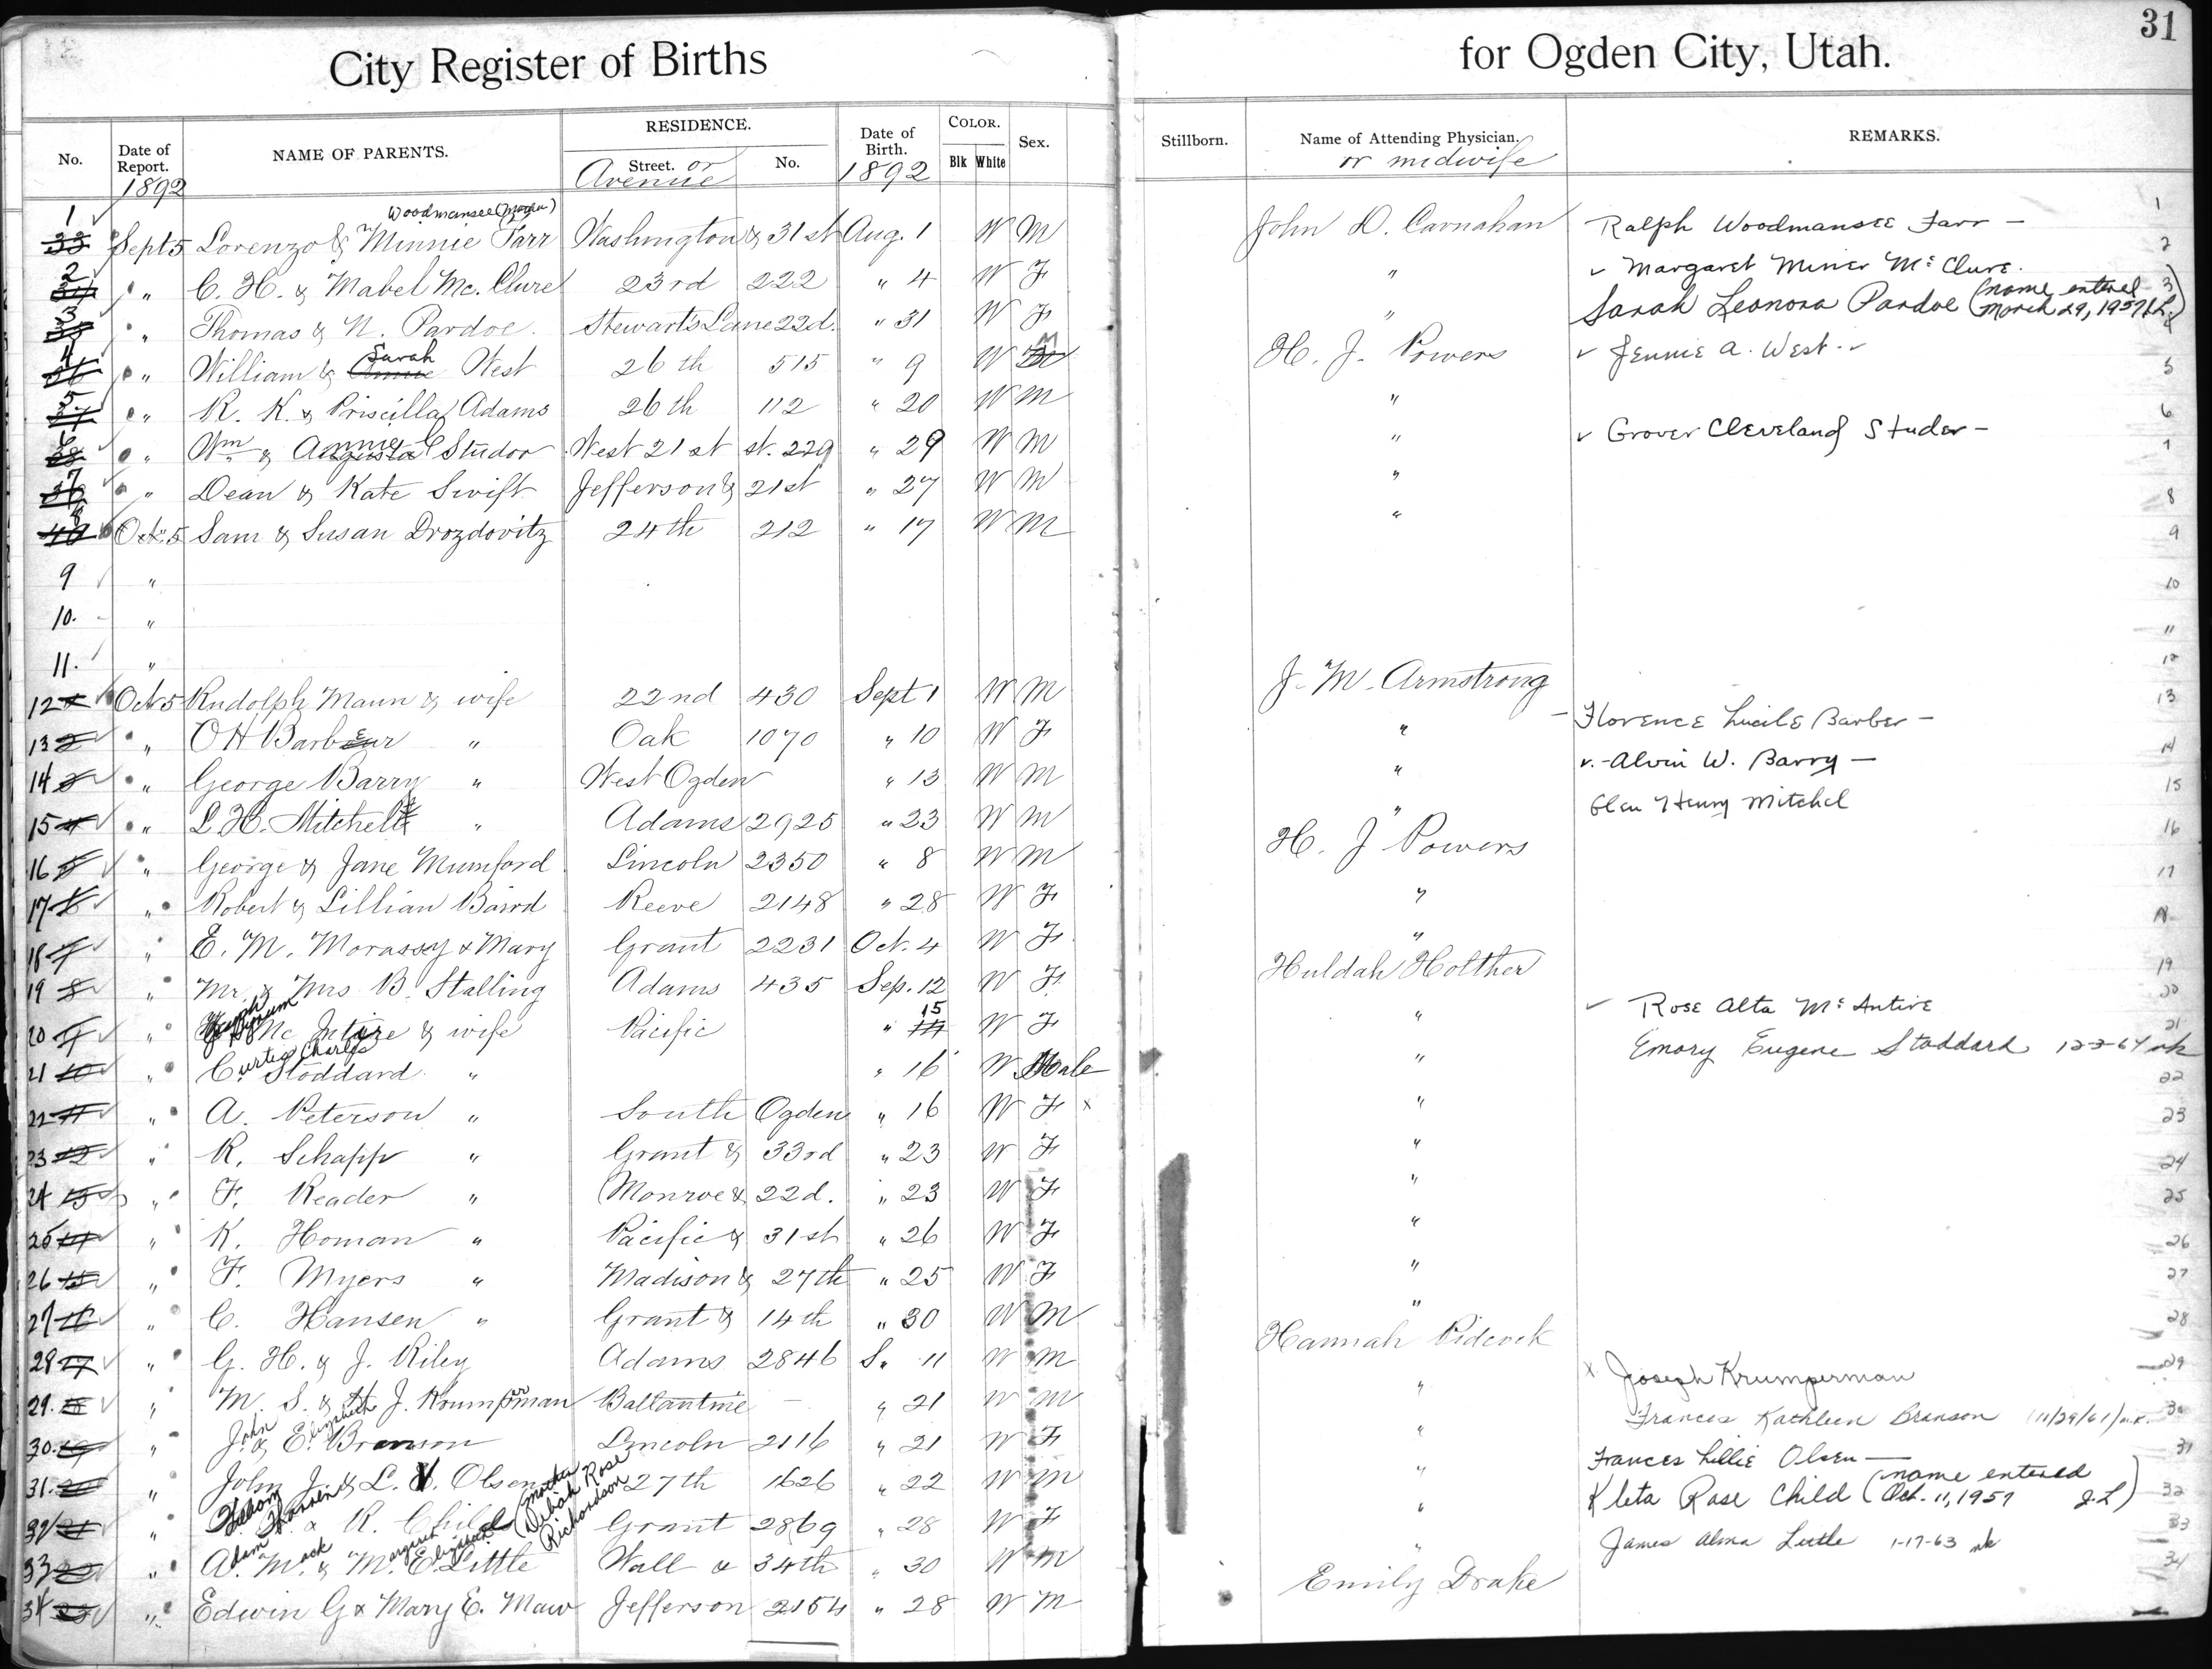 City Register of Births for Ogden City, Utah. 31
No. Date of Report. NAME OF PARENTS. RESIDENCE. Street. or Avenue No. Date of Birth. COLOR. Blk White Sex. Stillborn. Name of Attending Physician. or midwife REMARKS.
1892 1892
Woodmansee (Mother)
1 33 Sept 5 Lorenzo & Minnie Farr Washington & 31st Aug. 1 W M John D. Carnahan Ralph Woodmansee Farr - 1
2 34 " C. H. & Mabel Mc. Clure 23rd 222 " 4 W F " Margaret Miner Mc Clure. 2
3 35 " Thomas & N. Pardoe. Stewarts Lane 22d. " 31 W F " Sarah Leonora Pardoe (name entered March 29, 1957 J.L.) 3
4 36 " William & Annie Sarah West 26th 515 " 9 W M H. J. Powers Jennie A. West. 4
5 37 " R. K. & Priscilla Adams 26th 112 " 20 W M " 5
6 38 " Wm & Augusta Annie C Studor West 21st st. 229 " 29 W M " Grover Cleveland Studer - 6
7 39 " Dean & Kate Swift Jefferson & 21st " 27 W M " 7
8 40 Oct. 5 Sam & Susan Drozdovitz 24th 212 " 17 W M " 8
9 " 9
10. " 10
11. " 11
12 1 Oct 5 Rudolph Maun & wife 22nd 430 Sept 1 W M J. M. Armstrong 12
13 2 " O H Barber " Oak 1070 " 10 W F " Florence Lucile Barber - 13
14 3 " George Barry " West Ogden " 13 W M " Alvin W. Barry - 14
15 4 " L. H. Mitchell " Adams 2925 " 23 W M " Glen Henry Mitchel 15
16 5 " George & Jane Mumford Lincoln 2350 " 8 W M H. J Powers 16
17 6 " Robert & Lillian Baird Reeve 2148 " 28 W F " 17
18 7 " E. M. Morassy & Mary Grant 2231 Oct. 4 W F " 18
19 8 " Mr. & Mrs B. Stalling Adams 435 Sep. 12 W F Huldah Holther 19
20 9 " Joseph Hyrum Mc Intire & wife Pacific " 15 W F " Rose Alta Mc Intire 20
21 10 " Curtis Charles Stoddard " " 16 W Male " Emory Eugene Stoddard 12-2-64 nk 21
22 11 " A. Peterson " South Ogden " 16 W F x " 22
23 12 " R. Schapp " Grant & 33rd " 23 W F " 23
24 13 " F. Reader " Monroe & 22d. " 23 W F " 24
25 14 " K. Homan " Pacific & 31st " 26 W F " 25
26 15 " F. Myers " Madison & 27th " 25 W F " 26
27 16 " C. Hansen " Grant & 14th " 30 W M " 27
28 17 " G. H. & J. Riley Adams 2846 S. 11 W M Hannah Pidcock 28
29. 18 " M. S. & H. J. Krumperman Ballantine - " 21 W M " x Joseph Krumperman 29
30. 19 " John & Elizabeth Branson Lincoln 2116 " 21 W F " Frances Kathleen Branson (11/29/61) n.k. 30
31. 20 " John J. & L. V. Olsen 27th 1626 " 22 W M " Frances Lillie Olsen - 31
32 21 " Hansen & R. Child (mother Delilah Rose Richardson) Grant 2869 " 28 W F " Kleta Rose Child (name entered Oct. 11, 1957 J.L) 32
33 22 " Adam Mack & Margaret Elizabeth Little Wall & 34th " 30 W M " James Alma Little 1-17-63 nk 33
34 23 " Edwin G & Mary E. Maw Jefferson 2154 " 28 W M Emily Drake 34